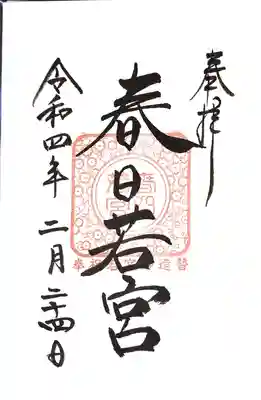 奉拝
春日若宮
令和四年 二月二十四日